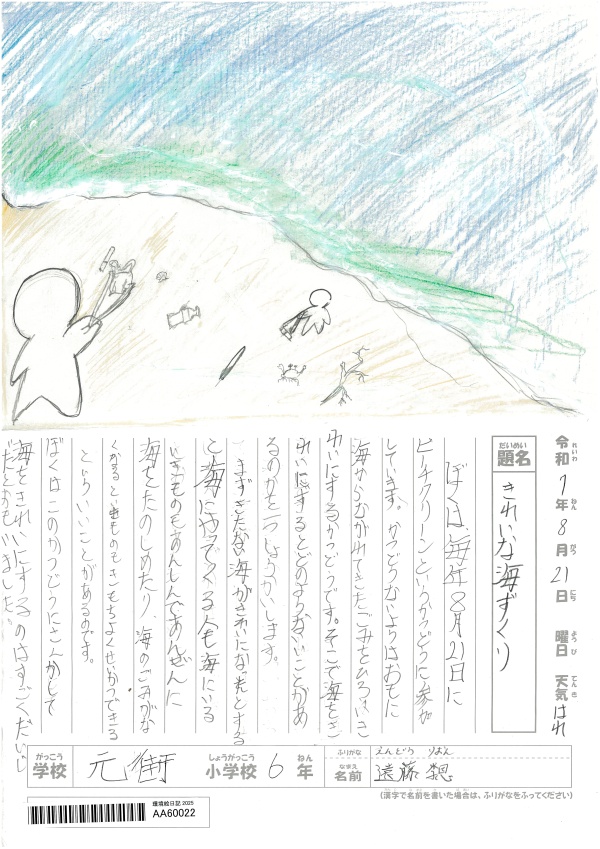 令和7年8月21日 曜日 天気 はれ
れいわ ねん がつ にち ようび てんき
だいめい
題名
きれいな海ずくり
ぼくは、毎年8月21日に
ビーチクリーンというかつどうに参加
しています。かつどうないようはおもに
海からながれてきたごみをひろいき
れいにするかつどうです。そこで海をき
れいにするとどのようないいことがあ
るのかを一つしょうかいします。
まずきたない海がきれいになったとする
と海にやってくる人も海にいる
いきものもあんしんであんぜんに
海をたのしめたり、海のごみがな
くなると生きものもきもちよくせいかつできる
といういいことがあるのです。
ぼくはこのかつどうにさんかして
海をきれいにするのはすごくだいじ
だとおもいました。
がっこう
学校
元街
しょうがっこう
小学校
6
ねん
年
ふりがな
えんどう りおん
なまえ
名前
遠藤
(漢字で名前を書いた場合は、ふりがなをふってください)
環境絵日記 2025
AA60022